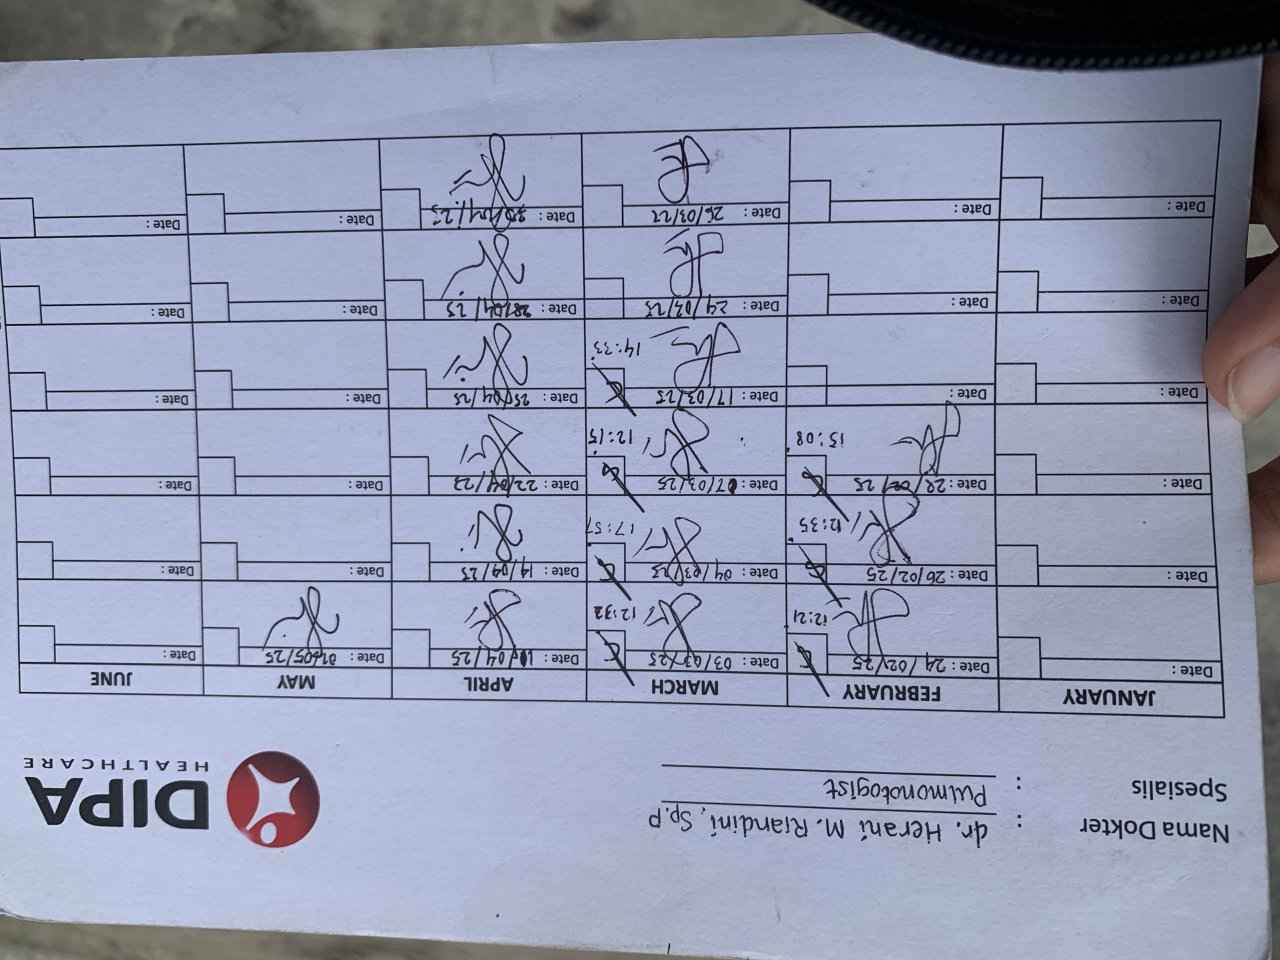 Nama Dokter : dr. Herani M. Riandini, Sp.P
Spesialis : Pulmonologist
DIPA
HEALTHCARE
JANUARY FEBRUARY MARCH APRIL MAY JUNE
Date : Date : 24/02/25 Date : 03/03/25 Date : 10/04/25 Date : 02/05/25 Date :
12:21 12:32
Date : Date : 26/02/25 Date : 04/03/25 Date : 14/04/25 Date : Date :
12:35 17:57
Date : Date : 28/02/25 Date : 07/03/25 Date : 22/04/22 Date : Date :
15:08 12:15
Date : Date : Date : 17/03/25 Date : 25/04/25 Date : Date :
14:33
Date : Date : Date : 24/03/25 Date : 28/04/25 Date : Date :
Date : Date : Date : 26/03/22 Date : /04/25 Date : Date :